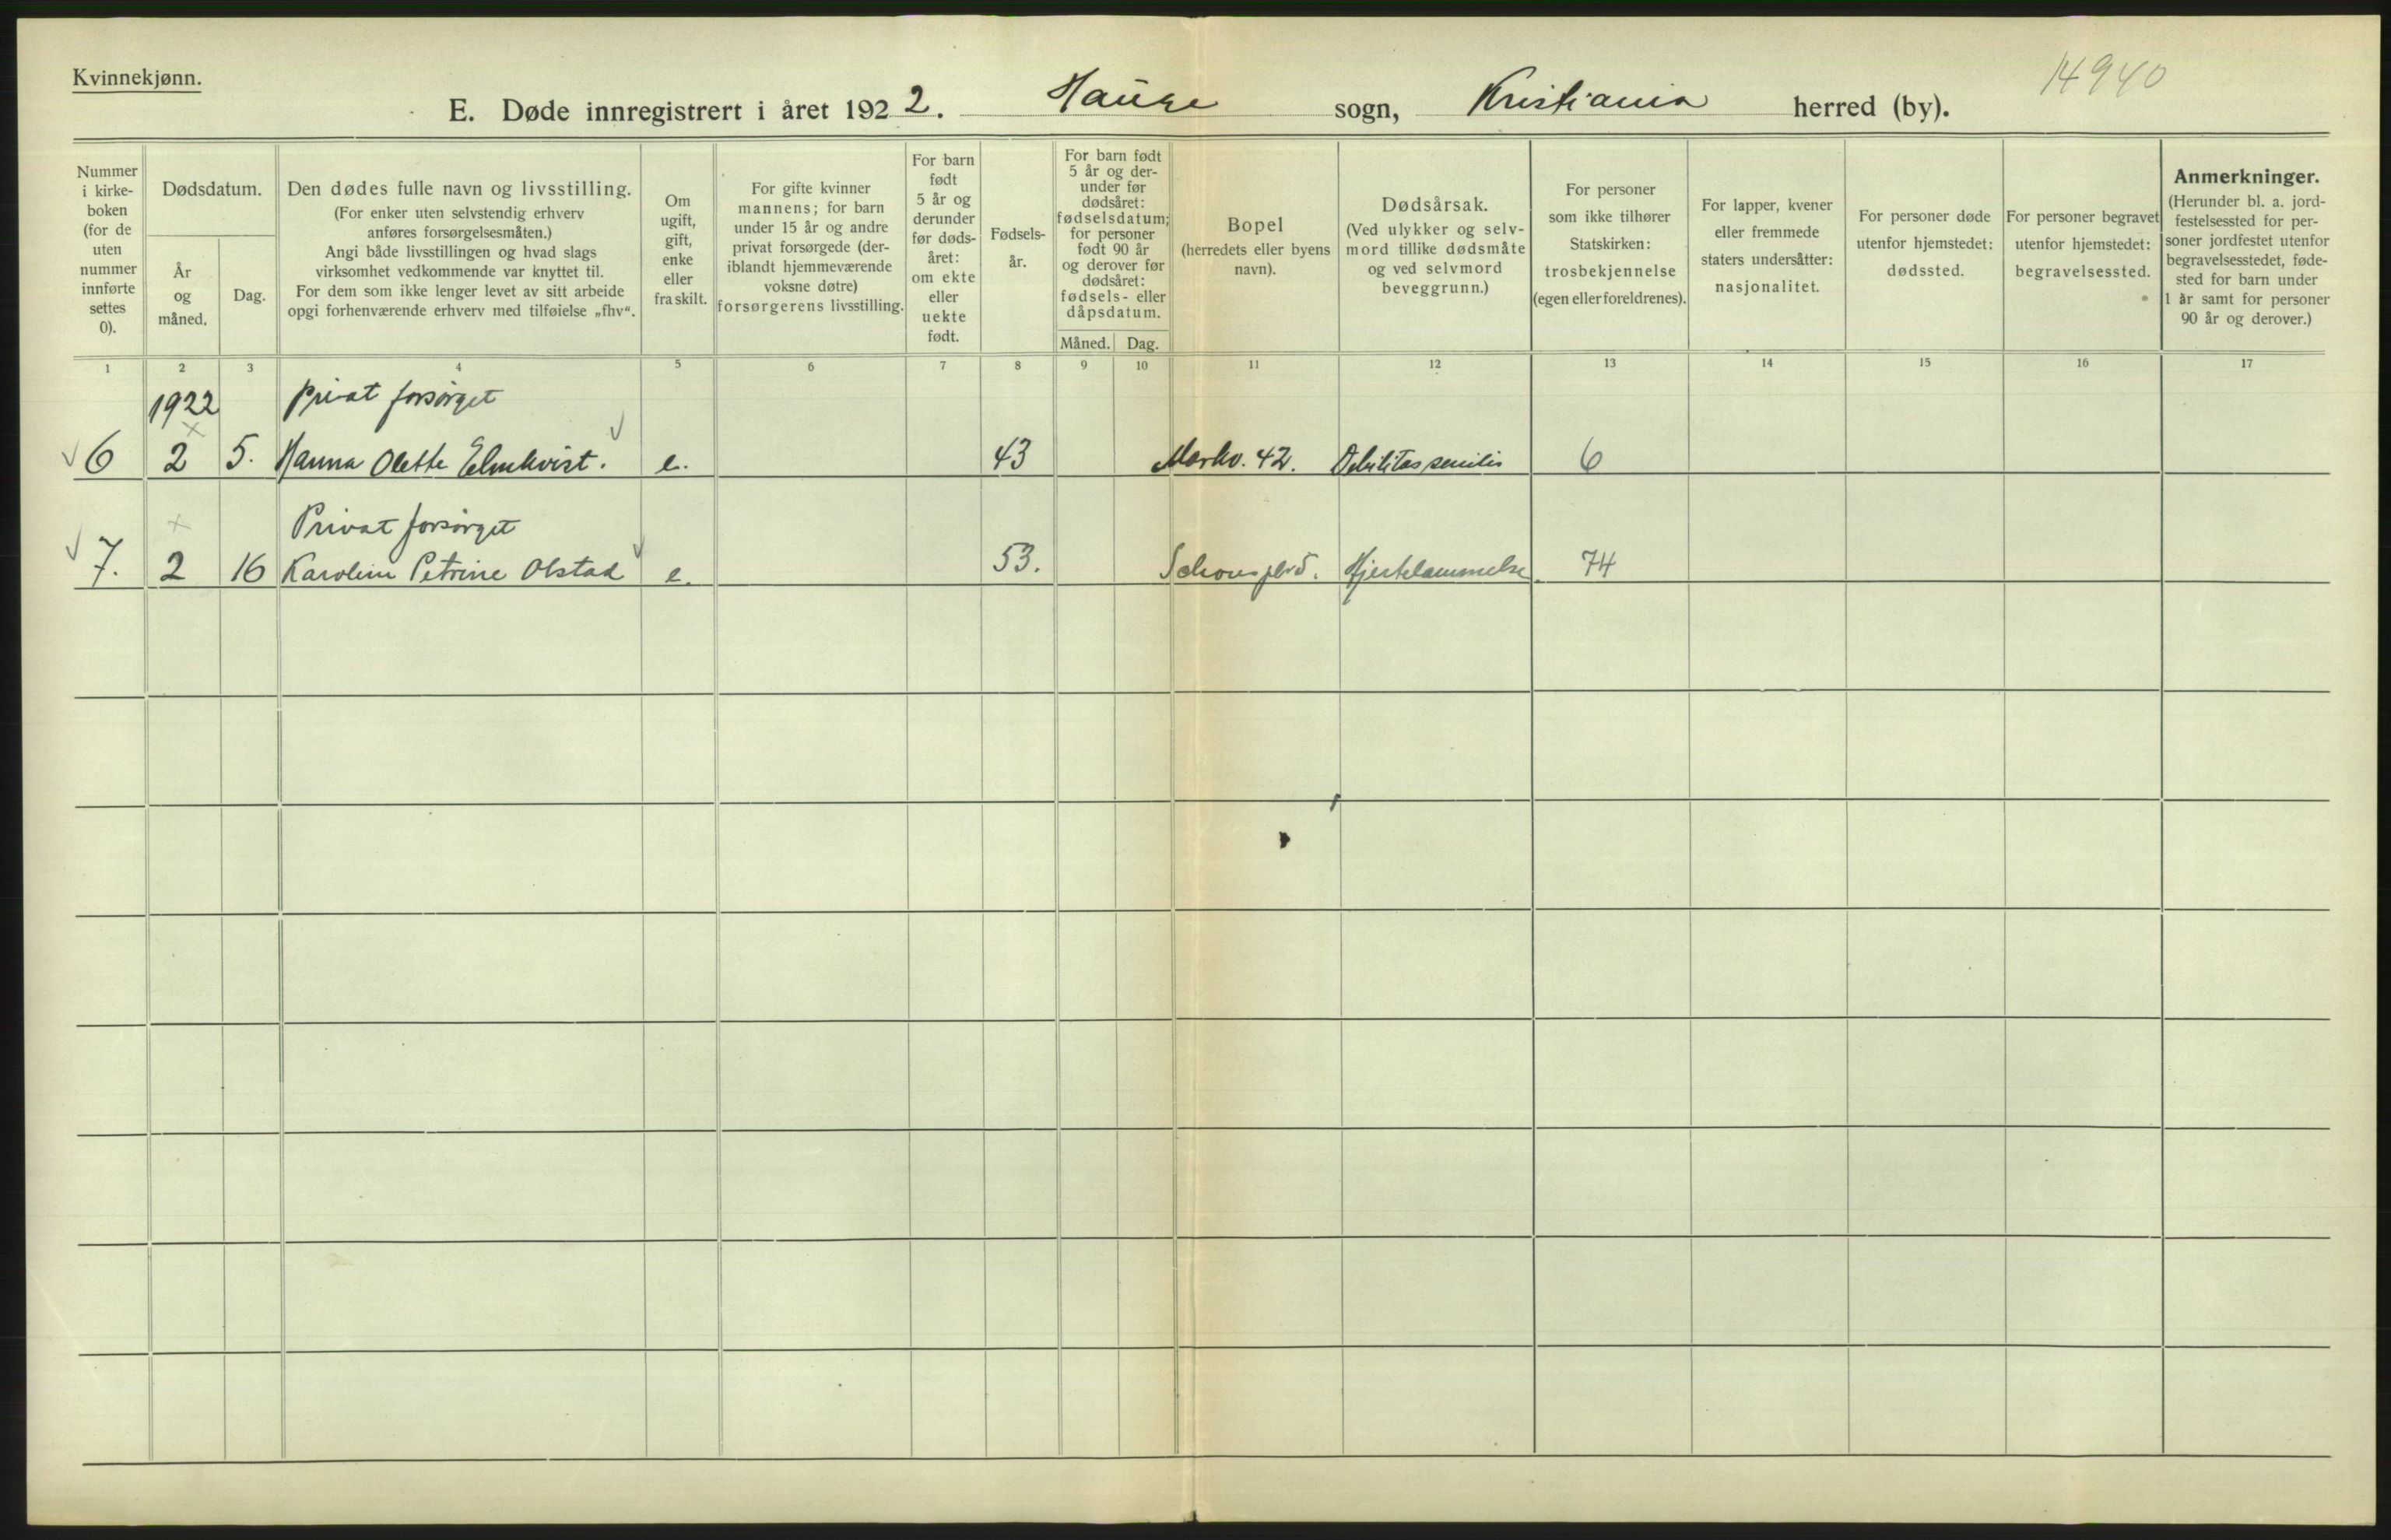 Kvinnekjønn.
14940
E. Døde innregistrert i året 1922. Hauge sogn, Kristiania herred (by).
Nummer
i kirke-
boken
(for de
uten
nummer
innførte
settes
0).
Dødsdatum.
År
og
måned.
Dag.
Den dødes fulle navn og livsstilling.
(For enker uten selvstendig erhverv
anføres forsørgelsesmåten.)
Angi både livsstillingen og hvad slags
virksomhet vedkommende var knyttet til.
For dem som ikke lenger levet av sitt arbeide
opgi forhenværende erhverv med tilføielse „fhv“.
Om
ugift,
gift,
enke
eller
fraskilt.
For gifte kvinner
mannens; for barn
under 15 år og andre
privat forsørgede (der-
iblandt hjemmeværende
voksne døtre)
forsørgerens livsstilling.
For barn
født
5 år og
derunder
før døds-
året:
om ekte
eller
uekte
født.
Fødsels-
år.
For barn født
5 år og der-
under før
dødsåret:
fødselsdatum;
for personer
født 90 år
og derover før
dødsåret:
fødsels- eller
dåpsdatum.
Måned. Dag.
Bopel
(herredets eller byens
navn).
Dødsårsak.
(Ved ulykker og selv-
mord tillike dødsmåte
og ved selvmord
beveggrunn.)
For personer
som ikke tilhører
Statskirken:
trosbekjennelse
(egen eller foreldrenes).
For lapper, kvener
eller fremmede
staters undersåtter:
nasjonalitet.
For personer døde
utenfor hjemstedet:
dødssted.
For personer begravet
utenfor hjemstedet:
begravelsessted.
Anmerkninger.
(Herunder bl. a. jord-
festelsessted for per-
soner jordfestet utenfor
begravelsesstedet, føde-
sted for barn under
1 år samt for personer
90 år og derover.)
1 2 3 4 5 6 7 8 9 10 11 12 13 14 15 16 17
1922 privat forsørget
6 2 5. Hanna Olette Elmkvist. e. 43 Markv. 42. Debilitas senilis 6
Privat forsørget
7. 2 16 Karoline Petrine Olstad e. 53. Hjertelammelse. 74